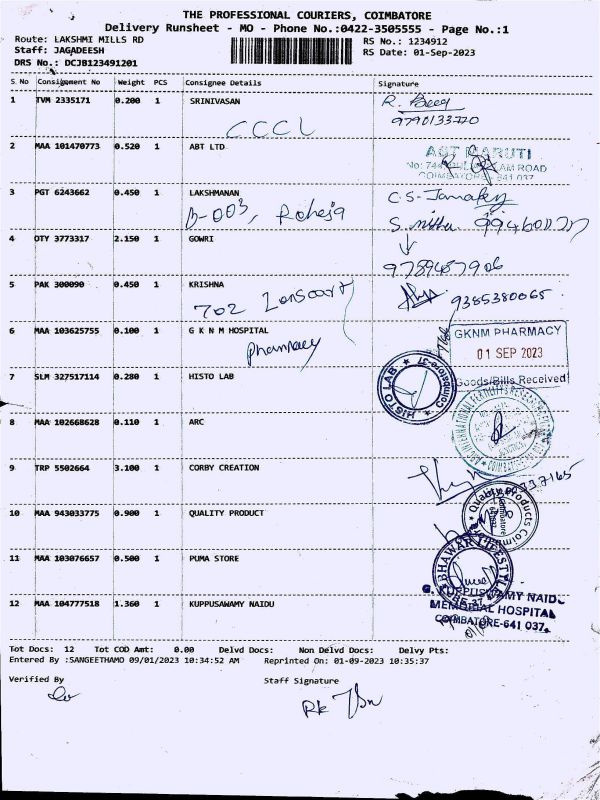 THE PROFESSIONAL COURIERS, COIMBATORE
Delivery Runsheet - MO - Phone No.:0422-3505555 - Page No.:1
Route: LAKSHMI MILLS RD RS No.: 1234912
Staff: JAGADEESH RS Date: 01-Sep-2023
DRS No.: DCJB123491201
S.No Consignment No Weight PCS Consignee Details Signature
1 TVM 2335171 0.200 1 SRINIVASAN R.
CCCL 9790133770
2 MAA 101470773 0.520 1 ABT LTD ABT MARUTI
No: 744 ROAD
COIMBATORE - 641 037
3 PGT 6243662 0.450 1 LAKSHMANAN C.S-
B-003, Raheja
4 OTY 3773317 2.150 1 GOWRI
9789487906
5 PAK 300090 0.450 1 KRISHNA
702 9385380065
6 MAA 103625755 0.100 1 G K N M HOSPITAL GKNM PHARMACY
Pharmacy 01 SEP 2023
Goods/Bills Received
7 SLM 327517114 0.280 1 HISTO LAB HISTO LAB Coimbatore-37
8 MAA 102668628 0.110 1 ARC
9 TRP 5502664 3.100 1 CORBY CREATION
10 MAA 943033775 0.900 1 QUALITY PRODUCT Quality Products Coimbatore
11 MAA 103076657 0.500 1 PUMA STORE
12 MAA 104777518 1.360 1 KUPPUSAWAMY NAIDU G. KUPPUSWAMY NAIDU
MEMORIAL HOSPITAL
COIMBATORE-641 037.
Tot Docs: 12 Tot COD Amt: 0.00 Delvd Docs: Non Delvd Docs: Delvy Pts:
Entered By :SANGEETHAMO 09/01/2023 10:34:52 AM Reprinted On: 01-09-2023 10:35:37
Verified By Staff Signature